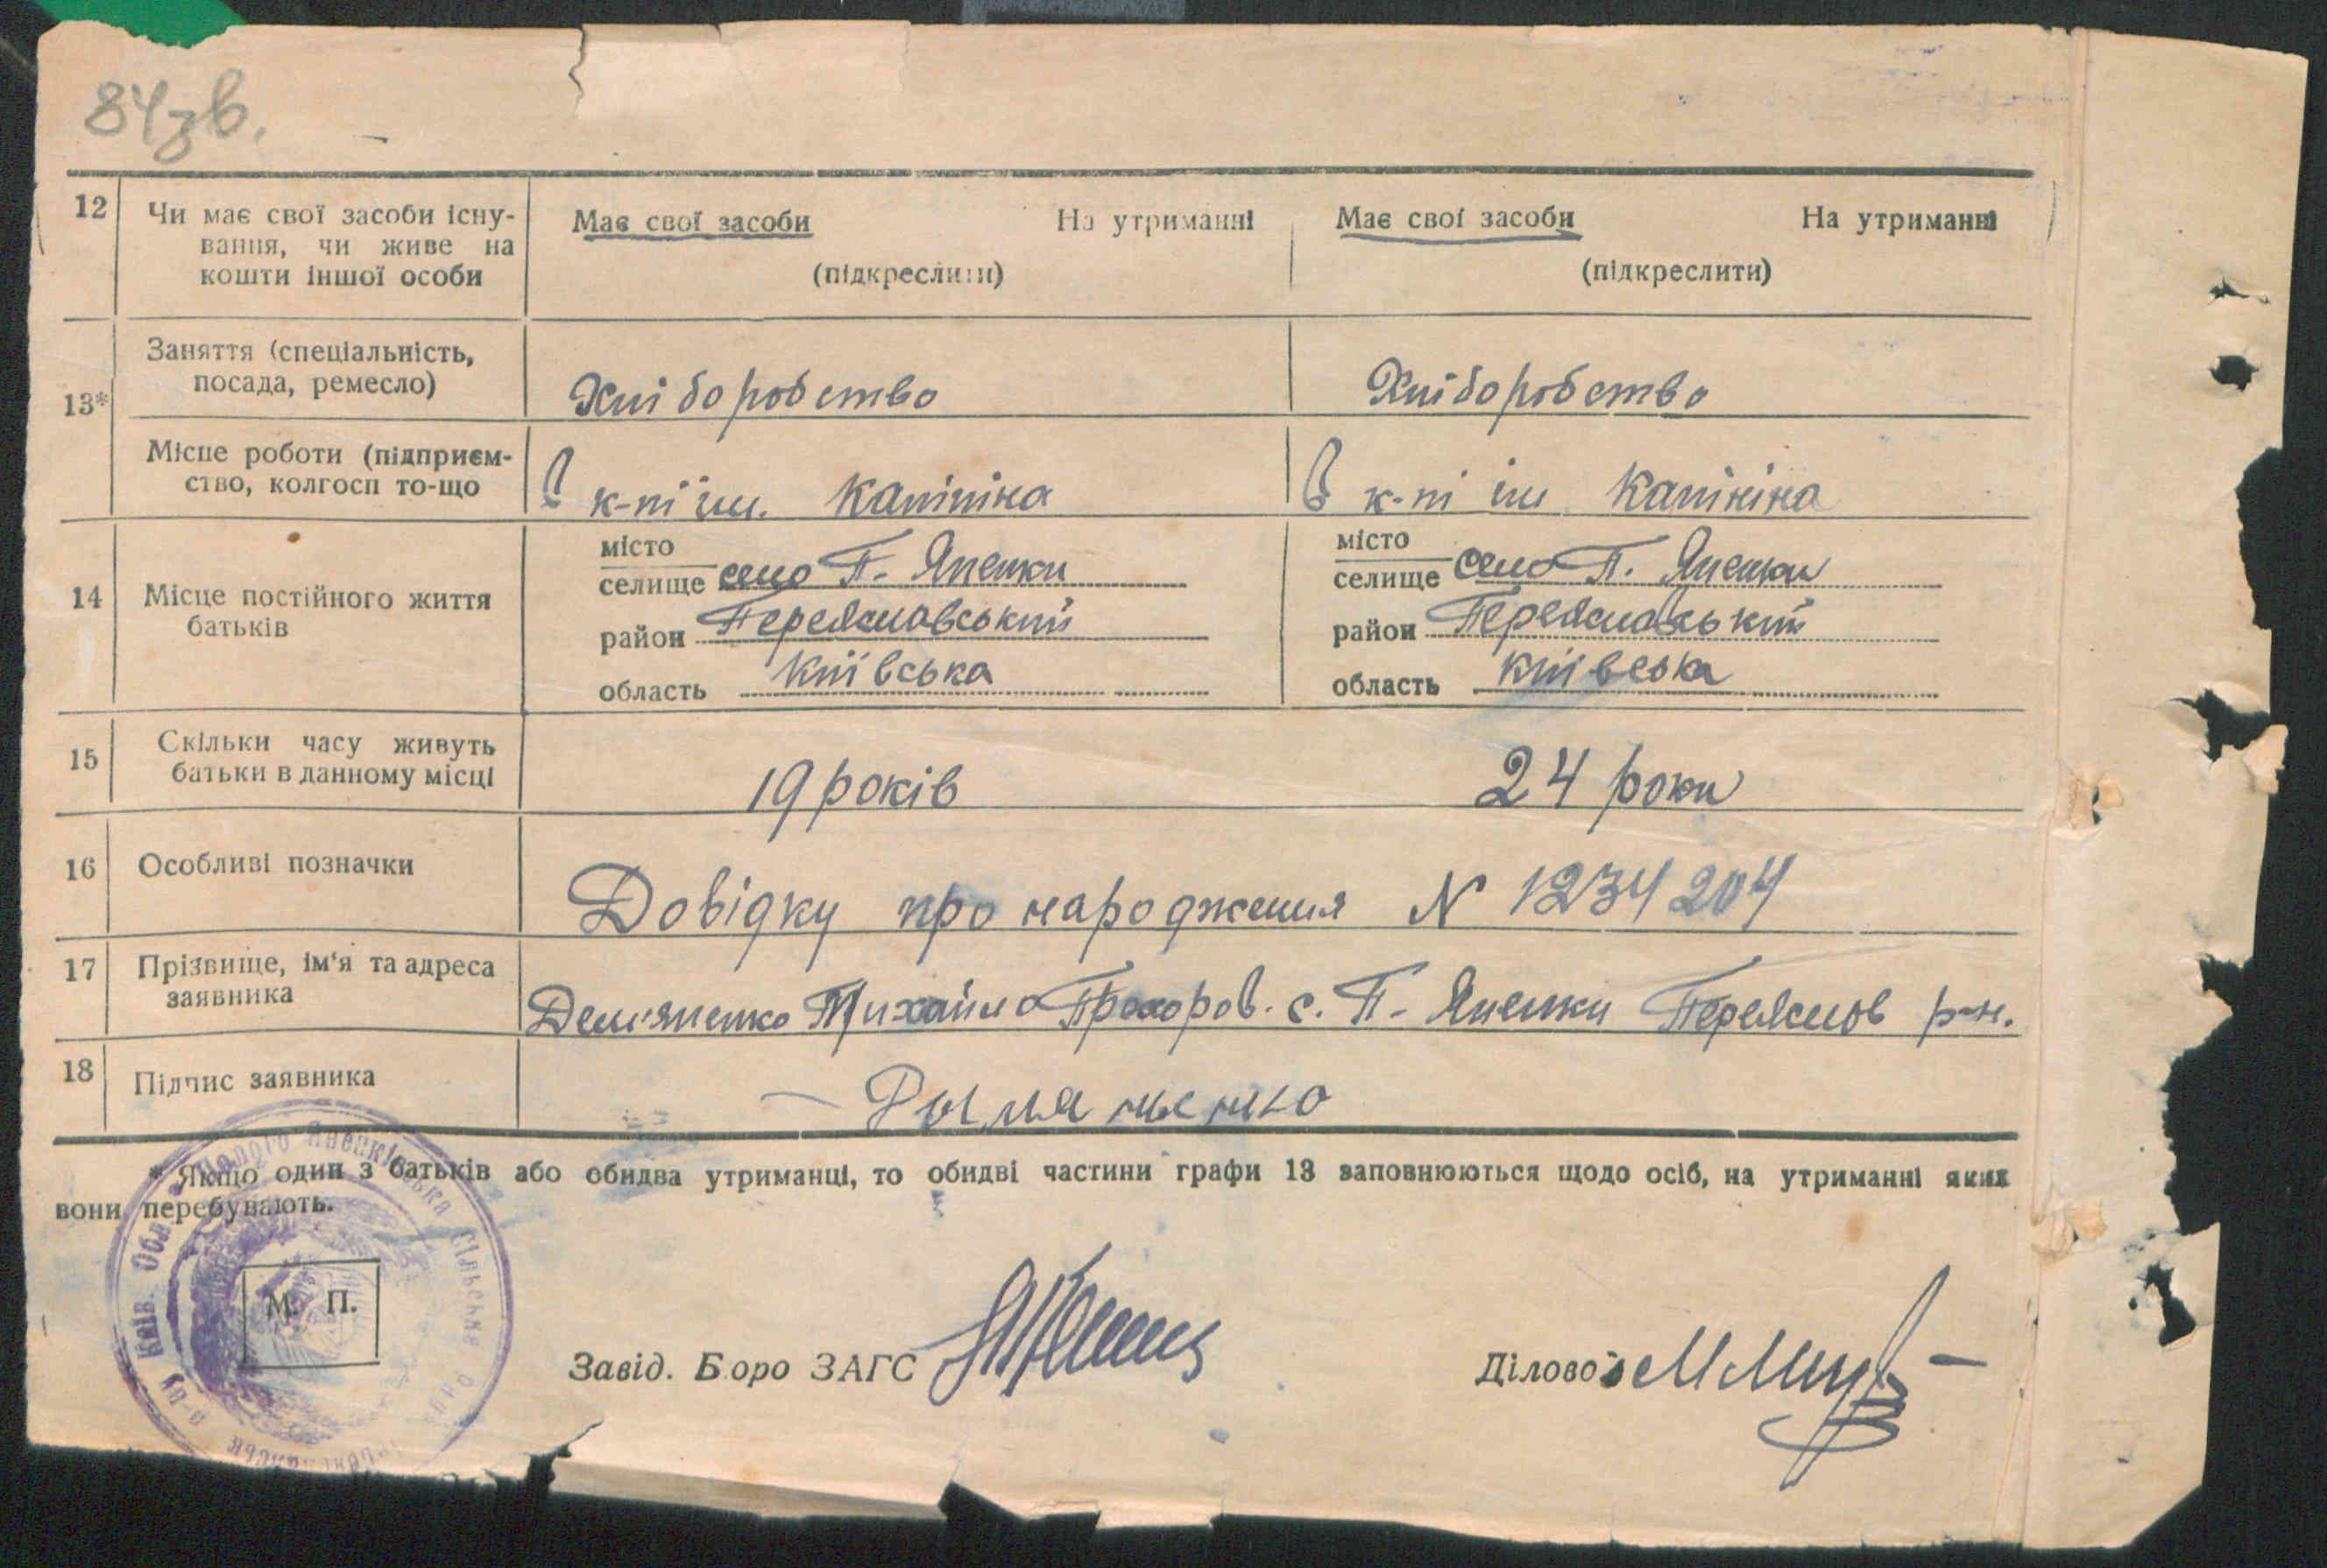 84зв.
12 Чи має свої засоби існу- Має свої засоби На утриманні Має свої засоби На утриманні
вання, чи живе на
кошти іншої особи (підкреслити) (підкреслити)
Заняття (спеціальність,
13* посада, ремесло) Хліборобство Хліборобство
Місце роботи (підприєм-
ство, колгосп то-що В к-пі ім. Калініна В к-пі ім Калініна
місто місто
селище село П. Яненки селище село П. Яненки
14 Місце постійного життя
батьків район Переяславський район Переяславський
область київська область київська
15 Скільки часу живуть
батьки в данному місці 19 років 24 роки
16 Особливі позначки Довідку про народження N 1234204
17 Прізвище, ім'я та адреса
заявника Дем'яненко Михайло Прохоров. с. П- Яненки Переяслов р-н.
18 Підпис заявника
* Якщо один з батьків або обидва утриманці, то обидві частини графи 13 заповнюються щодо осіб, на утриманні яких
вони перебувають.
Київ. Обл. сільська
М. П.
Завід. Бюро ЗАГС Діловод